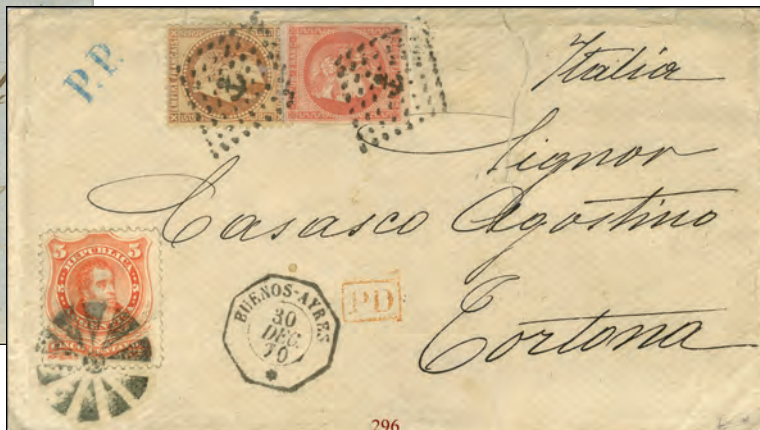 P.P.
EMPIRE FRANÇAIS
Italia
Signor
Casasco Agostino
Tortona
5 5
REPUBLICA
5 5
BUENOS-AYRES
30
DEC.
70
PD
296